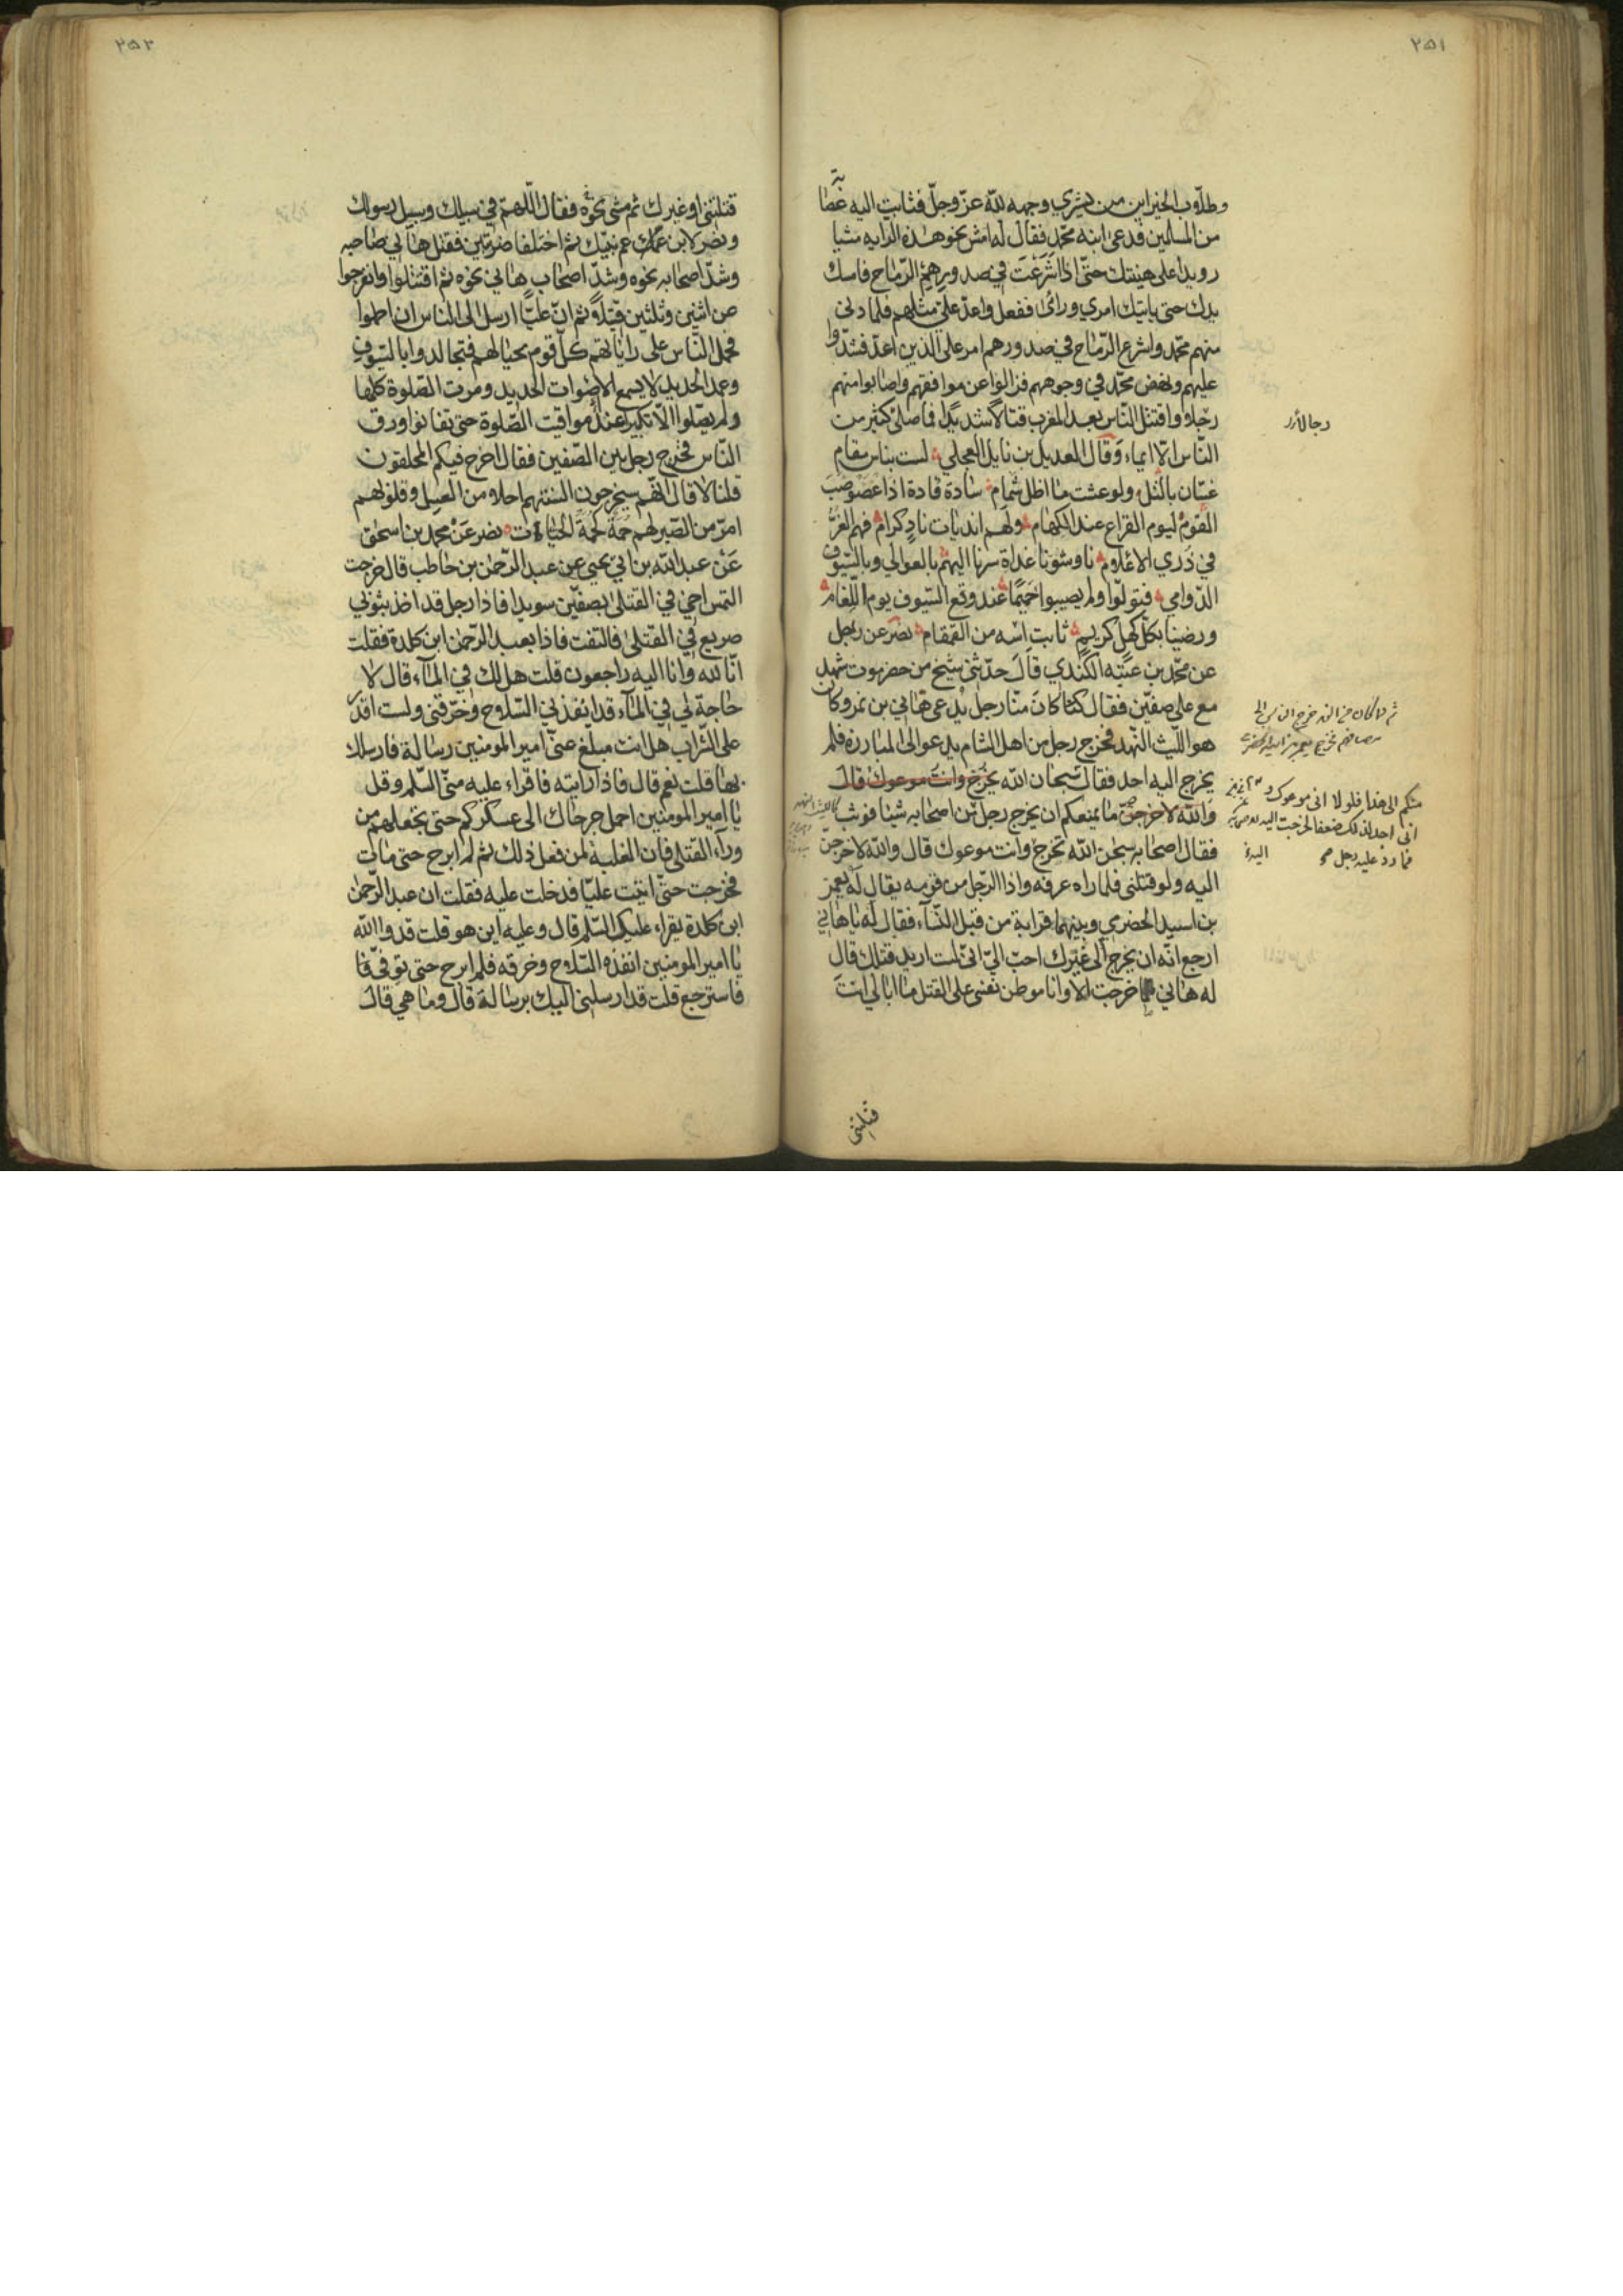 ٢٥١
وطلاب الخير اين من يشري وجهه لله عز وجل فثابت اليه عصا
بة
من المسلمين فدعى ابنه محمد فقال له امش نحو هذه الراية مشيا
رويدا على هينتك حتى اذا شرعت في صدورهم الرماح فامسك
يدك حتى ياتيك امري ورائى ففعل واعد على مثلهم فلما دنى
منهم محمد واشرع الرماح في صدورهم امر على الذين اعد فشدوا
عليهم ونهض محمد في وجوههم فزالوا عن مواقفهم واصابوا منهم
رجلا واقتتل الناس بعد المغرب قتالا شديدا فما صلى كثير من
الناس الا ايماء وقال العديل بن نايل العجلي لست بناس مقام
غسان بالتل ولو عشت ما اظل شمام سادة قادة اذا عصوصب
القوم ليوم القراع عند الكهام ولهم انديات ناد كرام فهم الغر
في ذري الاعلام ناوشونا غداة سرنا اليهم بالعوالي وبالسيوف
الدوامي فتولوا ولم يصيبوا حميما عند وقع السيوف يوم اللغام
ورضينا بكل كهل كريم ثابت اسه من القمقام نصر عن رجل
عن محمد بن عتبه الكندي قال حدثني شيخ من حضرموت شهد
مع على صفين فقال كنا كان منا رجل يدعى هاني بن نمر وكان
هو الليث النهد فخرج رجل من اهل الشام يدعو الى المبارزة فلم
يخرج اليه احد فقال سبحان الله يخرج وانت موعوك قال
والله لاخرجن ما يمنعكم ان يخرج رجل من اصحابه شيئا فوثب
فقال اصحابه سبحن الله تخرج وانت موعوك قال والله لاخرجن
اليه ولو قتلنى فلما راه عرفه واذا الرجل من قومه يقال له يعمر
بن اسيد الحضري وبينهما قرابة من قبل النساء فقال له ياهاني
ارجع انه ان يخرج الى غيرك احب الي انى لست اريد قتلك قال
له هاني ما خرجت الا وانا موطن نفسى على القتل ما ابالي انت
قتلتنى
منكم الى هذا فلولا انى موعوك و
انى اجد لذلك ضعفا لخرجت اليه
فما رد عليه رجل
٢٥٢
قتلتنى او غيرك ثم مشى نحوه فقال اللهم في سبيلك وسبيل رسولك
ونصر لابن عمك عم نبيك ثم اختلفا ضربتين فقتل هاني صاحبه
وشد اصحابه نحوه وشد اصحاب هاني نحوه ثم اقتتلوا وانفرجوا
عن اثنين وثلثين قتيلا ثم ان عليا ارسل الى الناس ان احملوا
فحمل الناس على راياتهم كل قوم بحيالهم فتجالدوا بالسيوف
وعمد الحديد لا يسمع الا صوات الحديد ومرت الصلوة كلها
ولم يصلوا الا تكبيرا عند مواقيت الصلوة حتى تفانوا ورق
الناس فخرج رجل بين الصفين فقال اخرج فيكم المحلقون
قلنا لا قال انهم سيخرجون السنتهم احلا من العسل وقلوبهم
امر من الصبر لهم حمة كحمة الحيات نصر عن محمد بن اسحق
عن عبد الله بن ابي يحيى عن عبد الرحمن بن حاطب قال خرجت
التمس اخي في القتلى بصفين سويدا فاذا رجل قد اخذ بثوبي
صريع في القتلى فالتفت فاذا بعبد الرحمن ابن كلدة فقلت
انا لله وانا اليه راجعون قلت هل لك في الماء قال لا
حاجة لي في الماء قد انفذ في السلاح وخرقنى ولست اقدر
على الشراب هل انت مبلغ عنى امير المومنين رسالة فارسلك
بها قلت نعم قال فاذا رايته فاقراء عليه منى السلم وقل
يا امير المومنين احمل جرحاك الى عسكركم حتى تجعلهم من
وراء القتلى فان الغلبة لمن فعل ذلك ثم لم ابرح حتى مات
فخرجت حتى اتيت عليا فدخلت عليه فقلت ان عبد الرحمن
ابن كلدة يقراء عليك السلم قال وعليه اين هو قلت قد والله
يا امير المومنين انفذه السلاح وخرقه فلم ابرح حتى توفى فا
فاسترجع قلت قد ارسلنى اليك برسالة قال وما هي قال